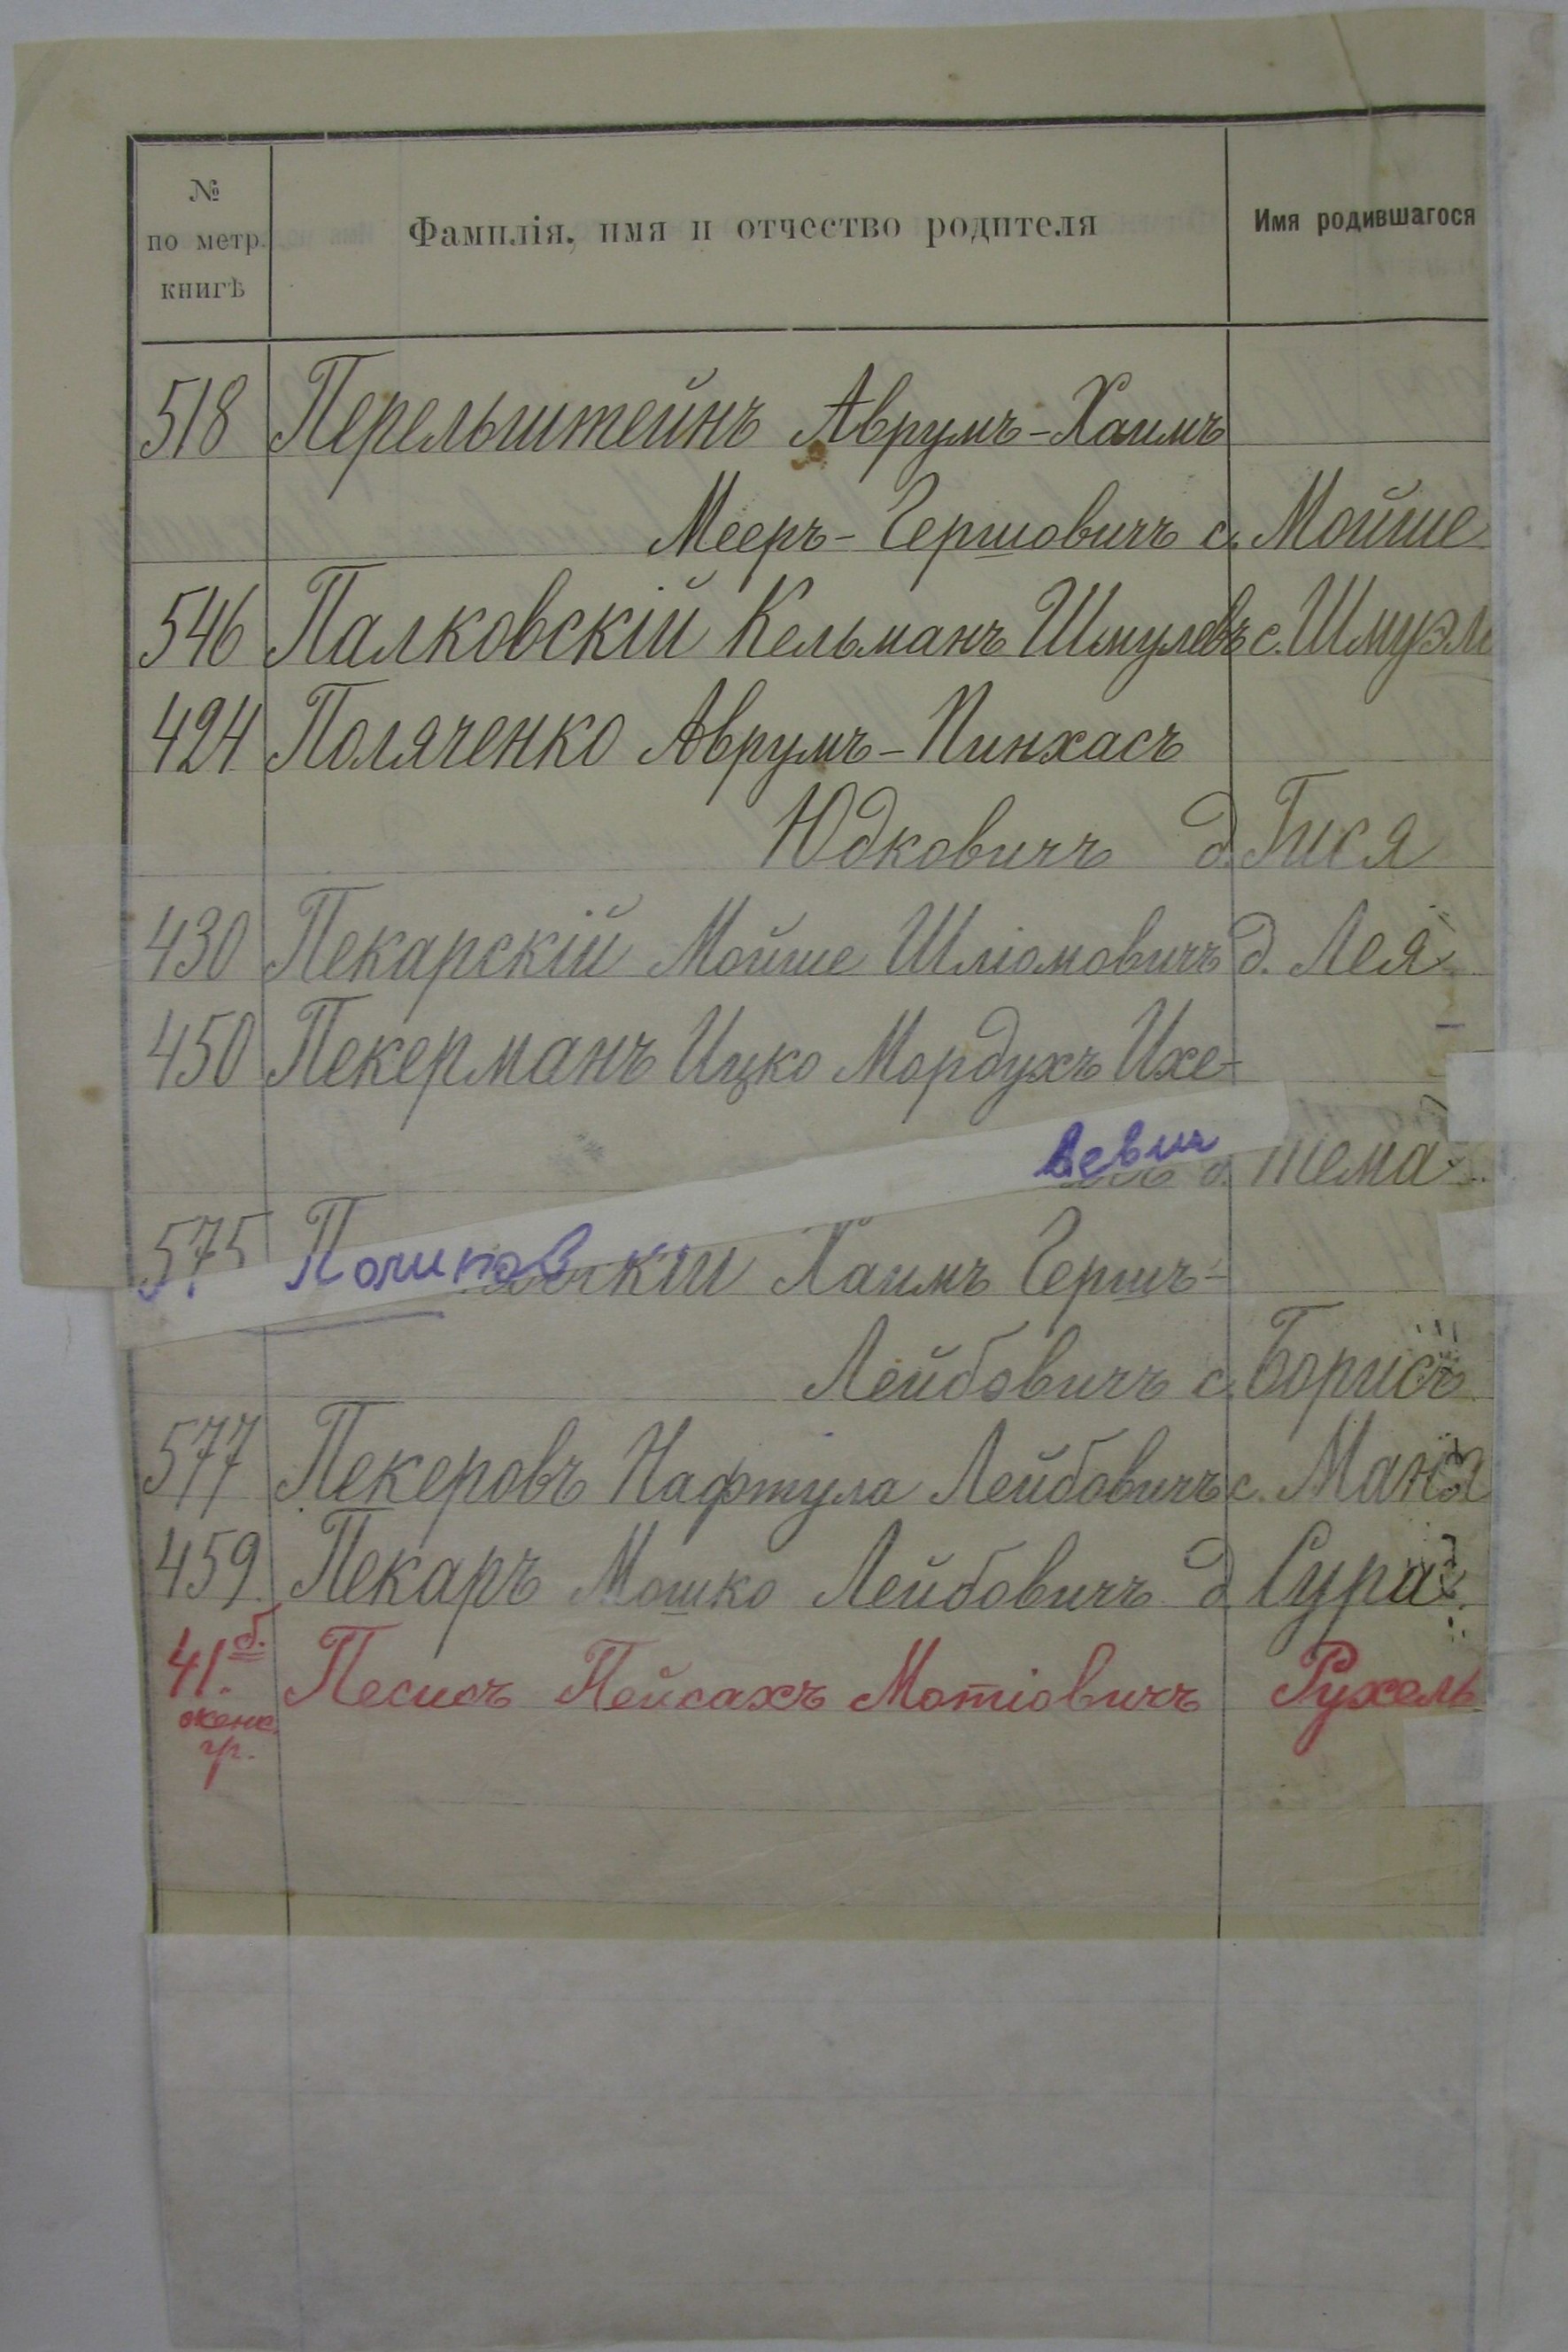 № по метр. книгѣ
Фамилія, имя и отчество родителя
Имя родившагося
518 Перельштейнъ Аврумъ-Хаимъ
Мееръ-Гершовичъ с. Мойше
546 Палковскій Кельманъ Шмулевъ с. Шмуэл
424 Поляченко Аврумъ-Пинхасъ
Юдковичъ д. Гися
430 Пекарскій Мойше Шліомовичъ д. Лея
450 Пекерманъ Ицко Мордухъ Ихе-
левич д. тема
575 Полиповскій Хаимъ Гершъ-
Лейбовичъ с. Борисъ
577 Пекеровъ Нафтула Лейбовичъ с. Маня
459 Пекаръ Мошко Лейбовичъ д. Сура
41.б. Песисъ Пейсахъ Мотіовичъ Рухель
женс.
гр.